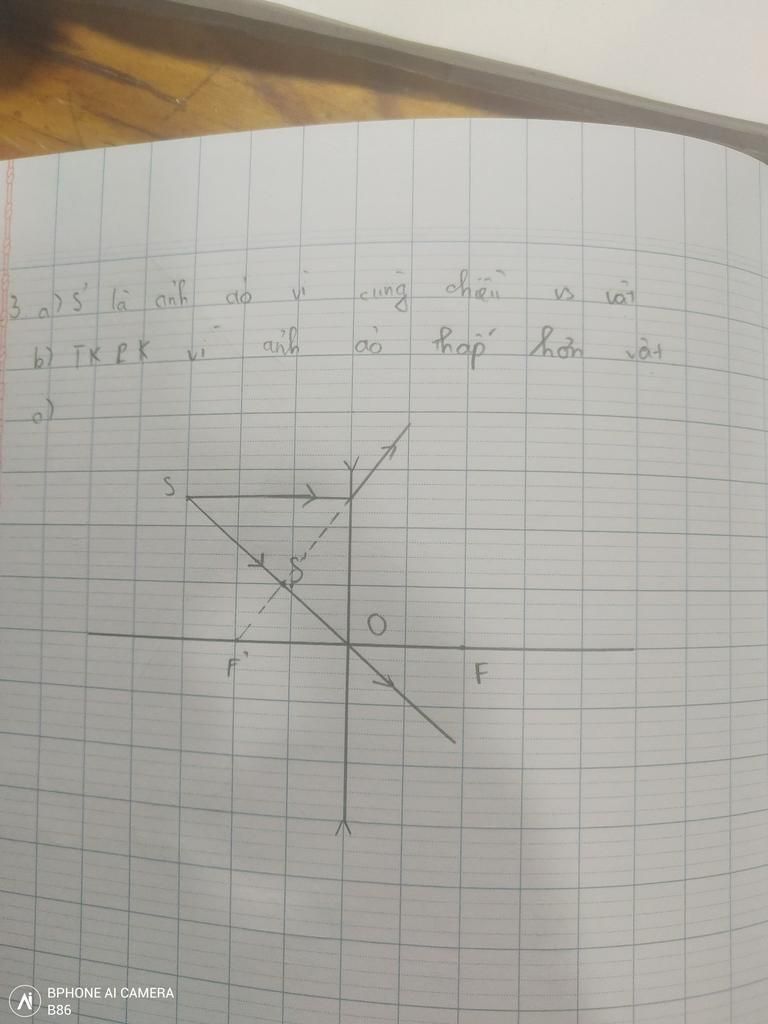 3 a) S' là ảnh ảo vì cùng chiều vs vật
b) TKPK vì ảnh ảo thấp hơn vật
c)
S
S'
O
F'
F
BPHONE AI CAMERA
B86